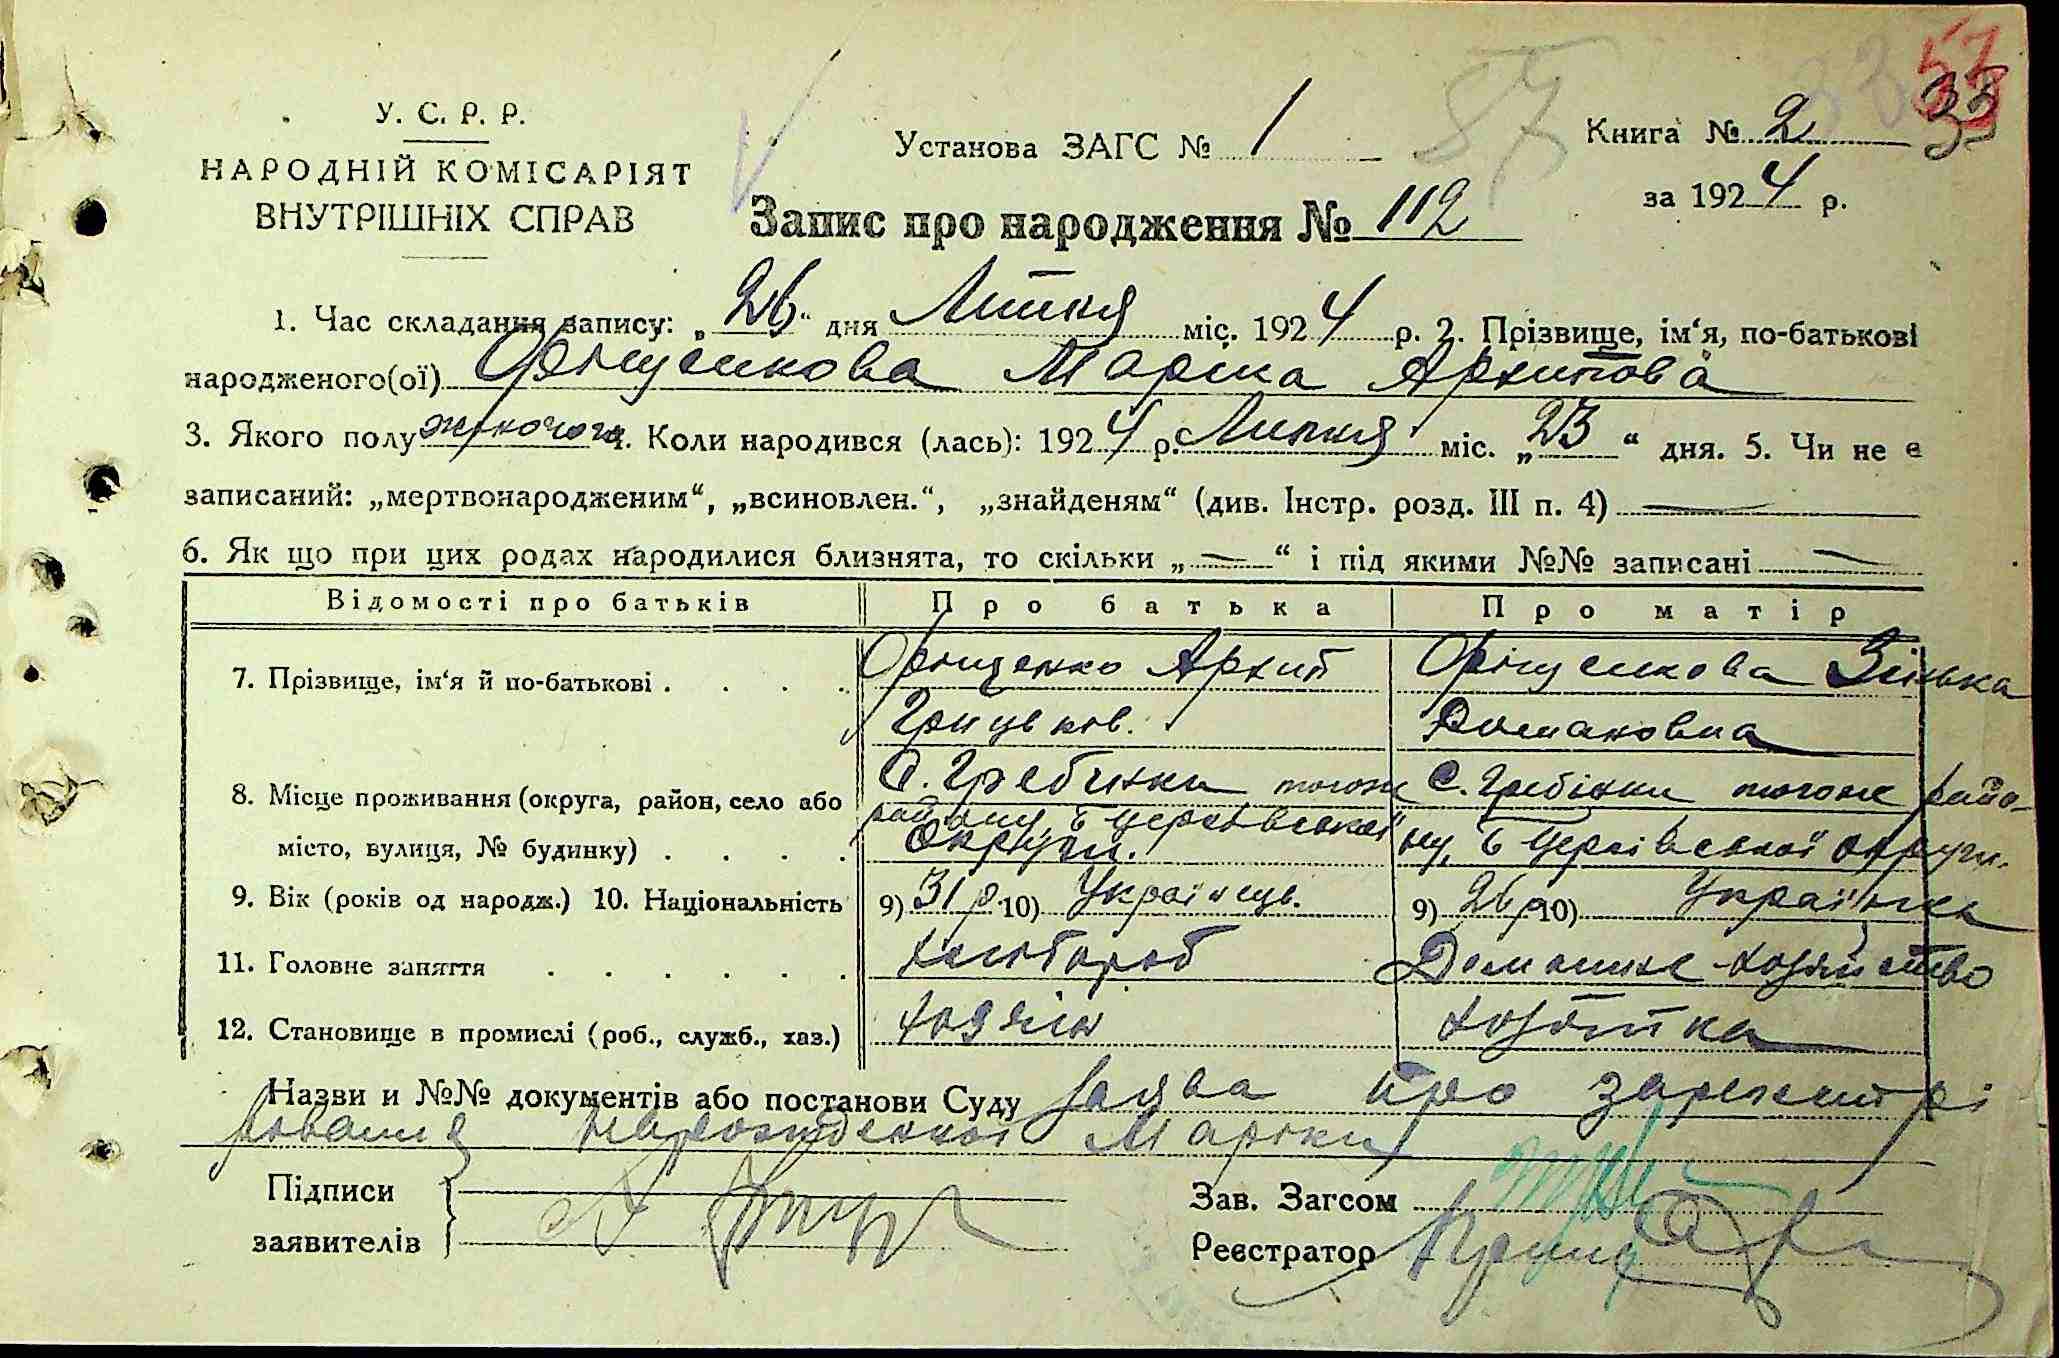 53
33
87
У. С. Р. Р.
НАРОДНІЙ КОМІСАРІЯТ
ВНУТРІШНІХ СПРАВ
Установа ЗАГС № 1
Книга № 2
за 1924 р.
Запис про народження № 112
1. Час складання запису: „26“ дня Липня міс. 1924 р. 2. Прізвище, ім‘я, по-батькові
народженого(ої) Оріщенкова Марїка Архипова
3. Якого полу жіночого 4. Коли народився (лась): 1924 р. Липня міс. „23“ дня. 5. Чи не є
записаний: „мертвонародженим“, „всиновлен.“, „знайденям“ (див. Інстр. розд. III п. 4) —
6. Як що при цих родах народилися близнята, то скільки „—“ і під якими №№ записані —
Відомості про батьків Про батька Про матір
7. Прізвище, ім‘я й по-батькові . . . . Оріщенко Архип Оріщенкова Зінька
Грицьков. Романовна
8. Місце проживання (округа, район, село або С. Гребінки тогож С. Гребінки тогоже райо-
району, Б Церківської
місто, вулиця, № будинку) . . . . Округи. ну, Б Церківської округи.
9. Вік (років од народж.) 10. Національність 9) 31 р. 10) Українець. 9) 26 р 10) Українка
11. Головне запяття . . . . . . хлібороб Домашнє хозяйство
12. Становище в промислі (роб., служб., хаз.) хозяїн хозяйка
Назви и №№ документів або постанови Суду Заява про зарегистрі
рования нарожденної Маріки
Підписи
заявителів
Зав. Загсом
Реєстратор